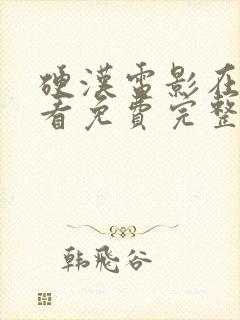 硬漢電影在
看免費完整
韩飛谷